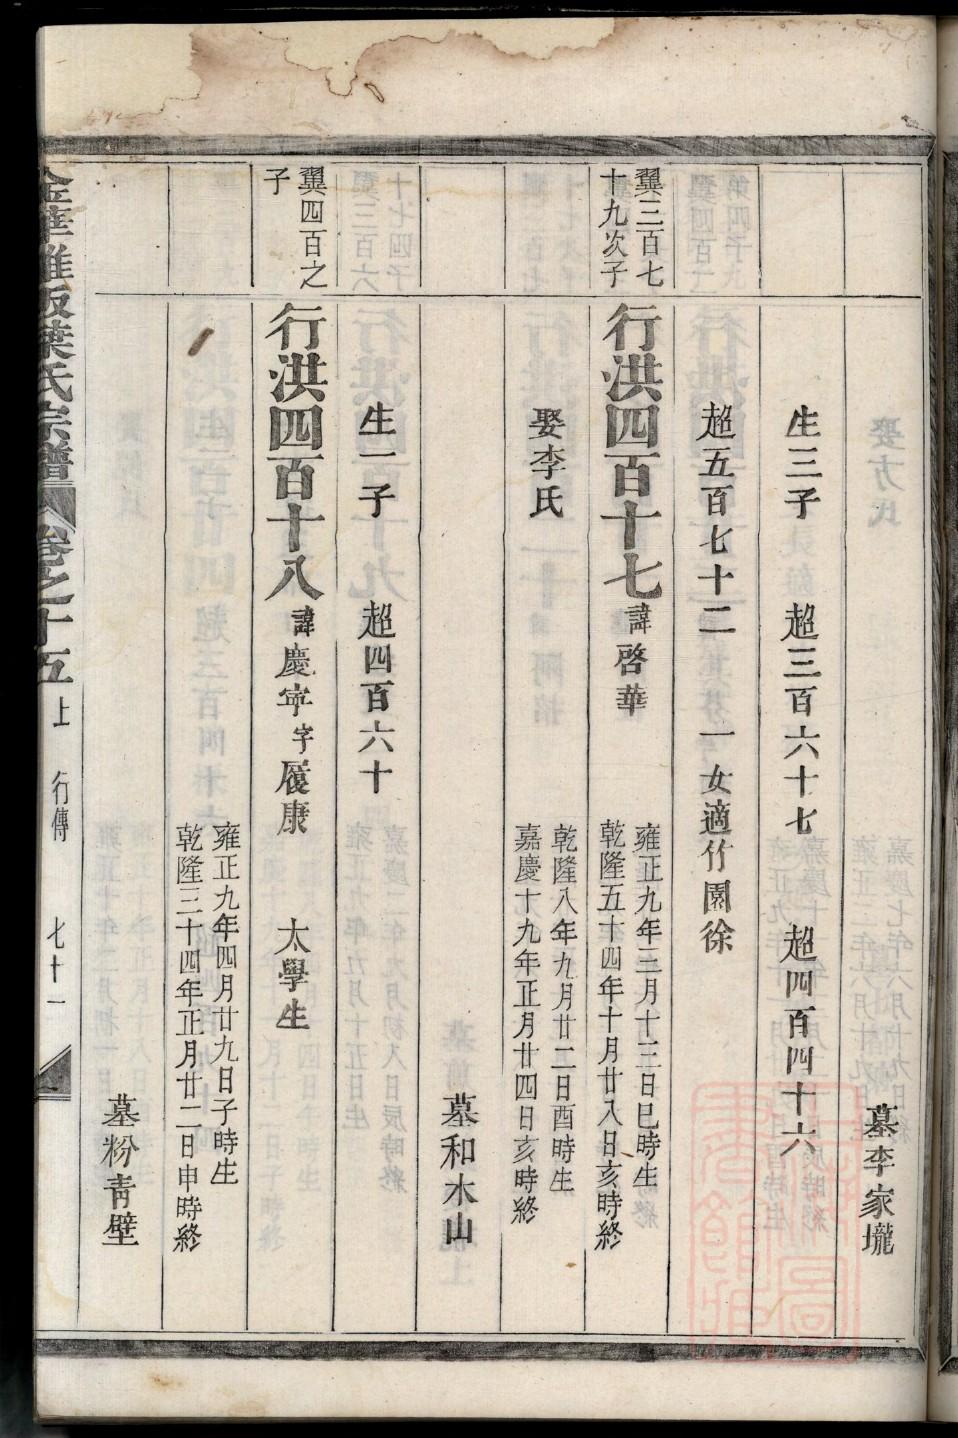 墓李家壠
生三子 超三百六十七 超四百四十六
超五百七十二 一女適竹園徐
翼三百七
十九次子
行洪四百十七 諱啓華
雍正九年三月十三日巳時生
乾隆五十四年十月廿八日亥時終
娶李氏
乾隆八年九月廿二日酉時生
嘉慶十九年正月廿四日亥時終
墓和木山
生一子 超四百六十
翼四百之
子
行洪四百十八 諱慶寕字履康 太學生
雍正九年四月廿九日子時生
乾隆三十四年正月廿二日申時終
墓粉青壁
金華雅畈葉氏宗譜 卷之十五上 行傳 七十一